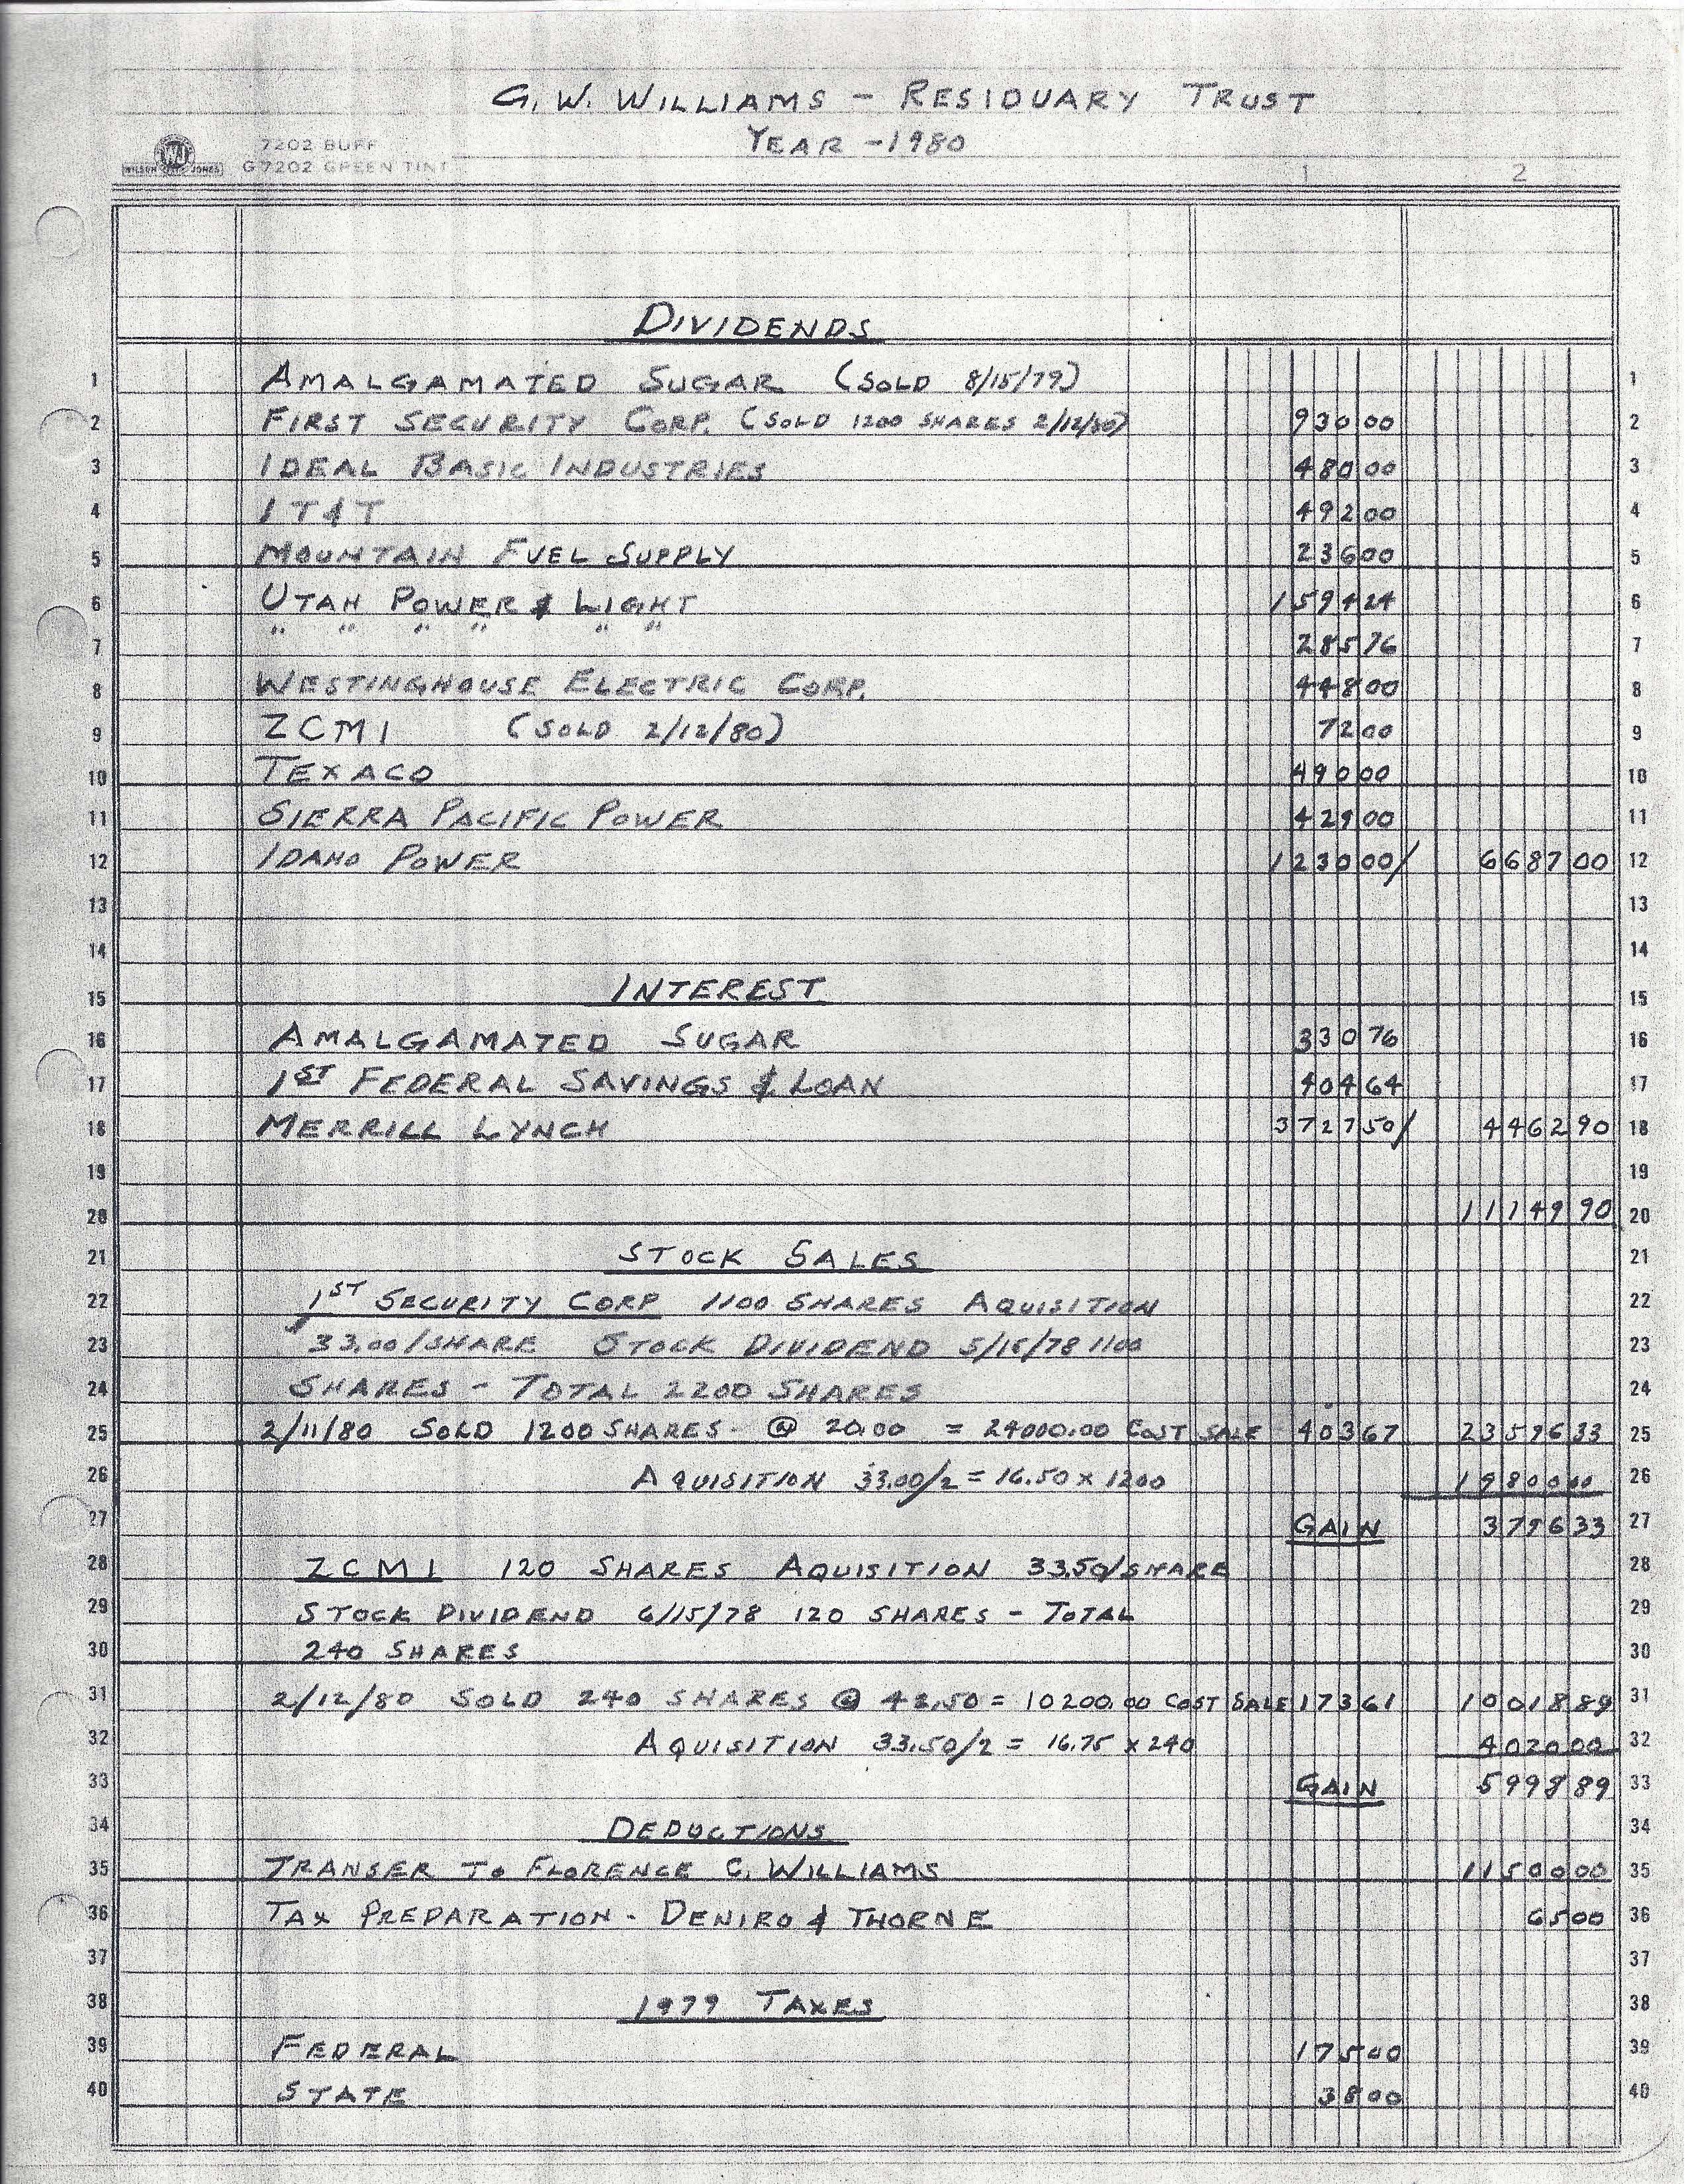 G. W. WILLIAMS – RESIDUARY TRUST
YEAR – 1980
WILSON WJ JONES 7202 BUFF
G7202 GREEN TINT 1 2
DIVIDENDS
1 AMALGAMATED SUGAR (SOLD 8/15/79) 1
2 FIRST SECURITY CORP. (SOLD 1200 SHARES 2/12/80) 930 00 2
3 IDEAL BASIC INDUSTRIES 480 00 3
4 IT&T 492 00 4
5 MOUNTAIN FUEL SUPPLY 236 00 5
6 UTAH POWER & LIGHT 1594 24 6
7 " " " " " " 285 76 7
8 WESTINGHOUSE ELECTRIC CORP. 448 00 8
9 ZCMI (SOLD 2/12/80) 72 00 9
10 TEXACO 490 00 10
11 SIERRA PACIFIC POWER 429 00 11
12 IDAHO POWER 1230 00/ 6687 00 12
13 13
14 14
15 INTEREST 15
16 AMALGAMATED SUGAR 330 76 16
17 1ST FEDERAL SAVINGS & LOAN 404 64 17
18 MERRILL LYNCH 3727 50/ 4462 90 18
19 19
20 11149 90 20
21 STOCK SALES 21
22 1ST SECURITY CORP 1100 SHARES AQUISITION 22
23 33.00/SHARE STOCK DIVIDEND 5/15/78 1100 23
24 SHARES – TOTAL 2200 SHARES 24
25 2/11/80 SOLD 1200 SHARES - @ 20.00 = 24000.00 COST SALE 403 67 23596 33 25
26 AQUISITION 33.00/2 = 16.50 x 1200 19800 00 26
27 GAIN 3796 33 27
28 ZCMI 120 SHARES AQUISITION 33.50/SHARE 28
29 STOCK DIVIDEND 6/15/78 120 SHARES – TOTAL 29
30 240 SHARES 30
31 2/12/80 SOLD 240 SHARES @ 42.50 = 10200.00 COST SALE 173 61 10018 89 31
32 AQUISITION 33.50/2 = 16.75 x 240 4020 00 32
33 GAIN 5998 89 33
34 DEDUCTIONS 34
35 TRANSER TO FLORENCE C. WILLIAMS 11500 00 35
36 TAX PREPARATION - DENIRO & THORNE 65 00 36
37 37
38 1979 TAXES 38
39 FEDERAL 175 00 39
40 STATE 38 00 40